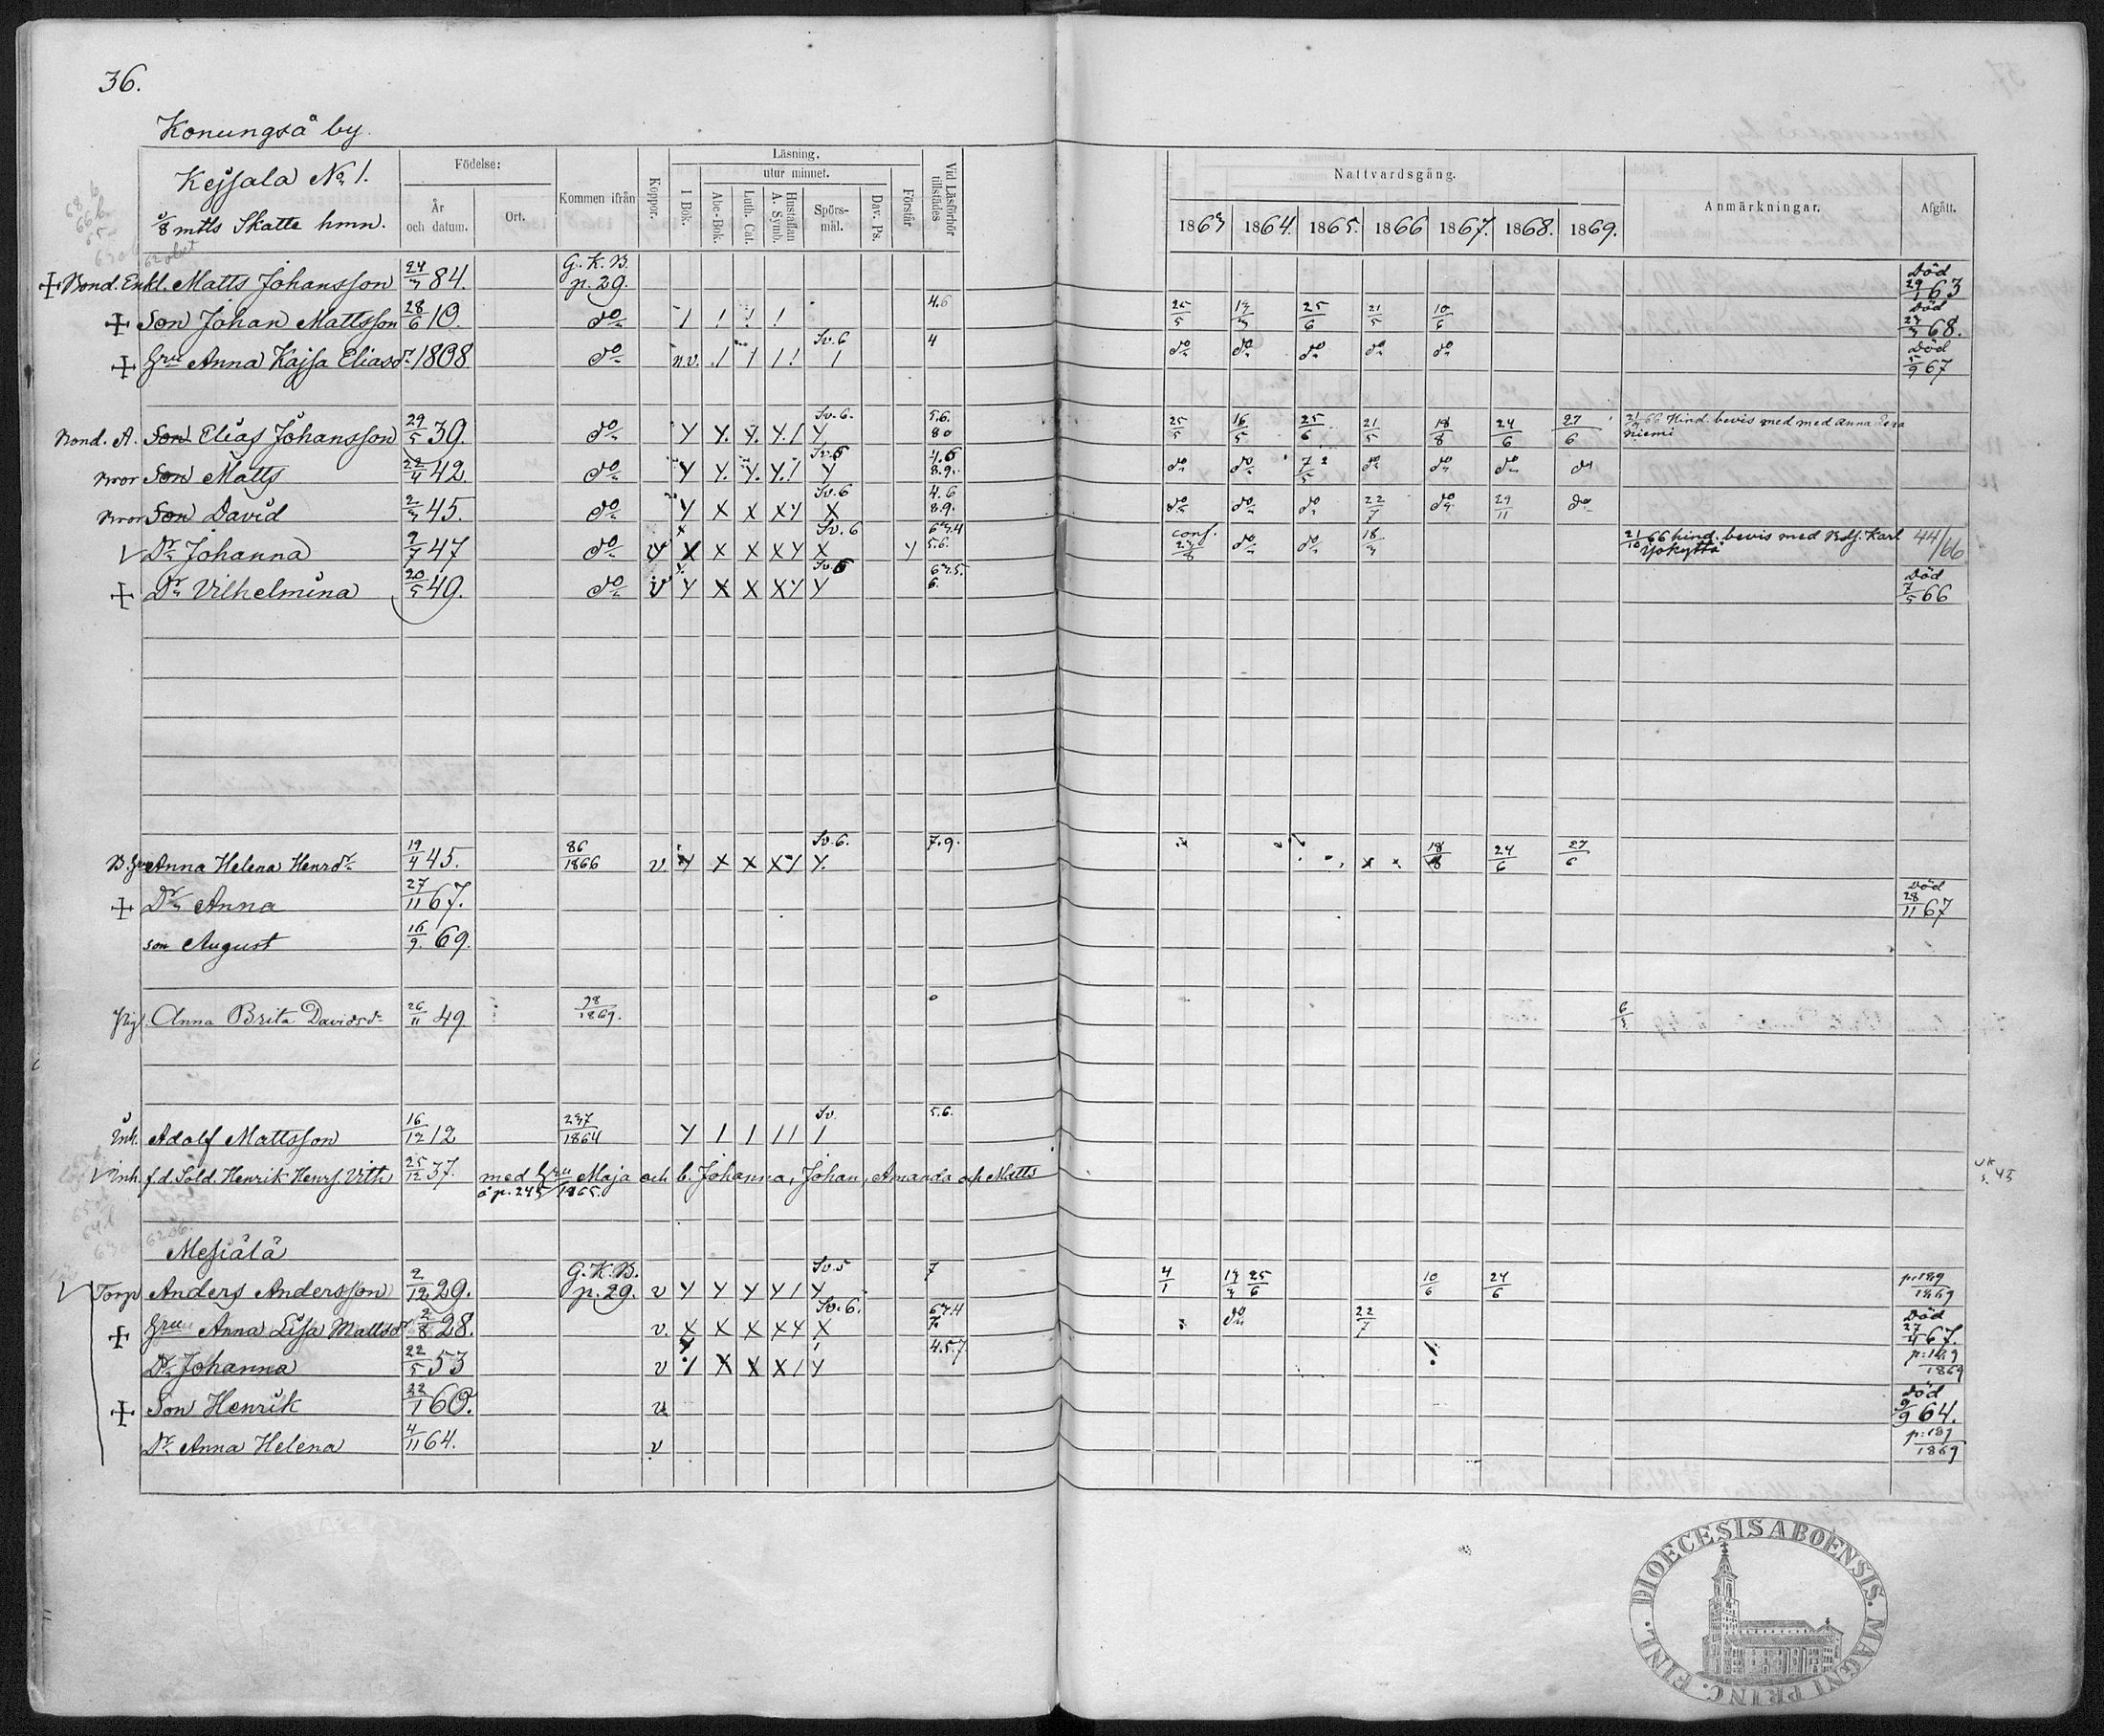 36.
Konungså by.
Kejsala No 1.
mtls Skatte hmn.
Födelse:
År och datum.
Ort.
Kommen ifrån
Koppor.
Läsning.
I Bok.
utur minnet.
Abc-Bok.
Luth. Cat.
Hustaflan A. Symb.
Spörsmål.
Dav. Ps.
Förstår.
Vid Läsförhör tillstädes
Nattvardsgång.
1863 1864. 1865. 1866 1867. 1868. 1869.
Anmärkningar.
Afgått.
Bond. Enkl. Matts Johansson 24/3 84. G. K. B. p. 29. Död 29/1 63
Son Johan Mattsson 28/6 10. do 1 ! ! ! 4.6 25/5 19/3 25/6 21/5 10/6 Död 68.
Hru Anna Kajsa Eliasdr 1808 do n.v. 1 1 1! Sv. 6 1 4 do do do do do Död 5/9 67
Bond. A. Son Elias Johansson 29/5 39. do Y Y. Y. Y.1 Sv. 6. Y 5.6. 80 25/5 16/5 25/6 21/5 18/8 24/6 27/6 66 Hind. bevis med med Anna niemi
Bror Son Matts 42. do Y Y. Y. Y.! Sv. 6 Y 4.6 8.9. do do do do do do
Bror Son David 2/3 45. do Y X X XY Sv. 6 X 4.6 8.9. do do do 22/7 do 29/11 do
V Dr Johanna 2/7 47 do v X X X XY Sv. 6 X Y 5.6. conf. do do 18/3 21/10 66 hind. bevis med Karl 44/66
Dr Vilhelmina 20/5 49. do v Y X X XY Sv. 6 Y 6. Död 7/5 66
B. Hru Anna Helena Henrdr 19/4 45. 86/1866 v. Y X X XY Sv. 6. Y. 7.9. x x 18/8 24/6 27/6
Dr Anna 27/11 67. Död 28/11 67
son August 16/9. 69.
Pig. Anna Brita Davidsdr 26/11 49 98/1869. 6/3
Inh. Adolf Mattsson 16/12 12 237/1864 Y 1 1 11 Sv. 1 5.6.
V Inh. f.d. Sold. Henrik Henrs. Vith 25/12 37. med Hru Maja och b. Johanna, Johan, Amanda och Matts
å p. 245/1865.
Mesiälä
V Torp Anders Andersson 2/12 29. G. K. B. p. 29. v Y Y Y Y1 Sv. 5 Y 7 4/1 19/3 25/6 10/6 24/6 p. 189/1869
Hru Anna Lisa Mattsdr 2/8 28. v. X X X XY Sv. 6. X do 22/7 Död 27/4 67.
Dr Johanna 22/5 53 v 1 X X X1 Y 4.5.7 p. 189/1869
Son Henrik 22/1 60. v Död 9/9 64.
Dr Anna Helena 4/11 64. v p. 189/1869
DIOECESIS ABOENSIS. MAGNI PRINC. FINL.